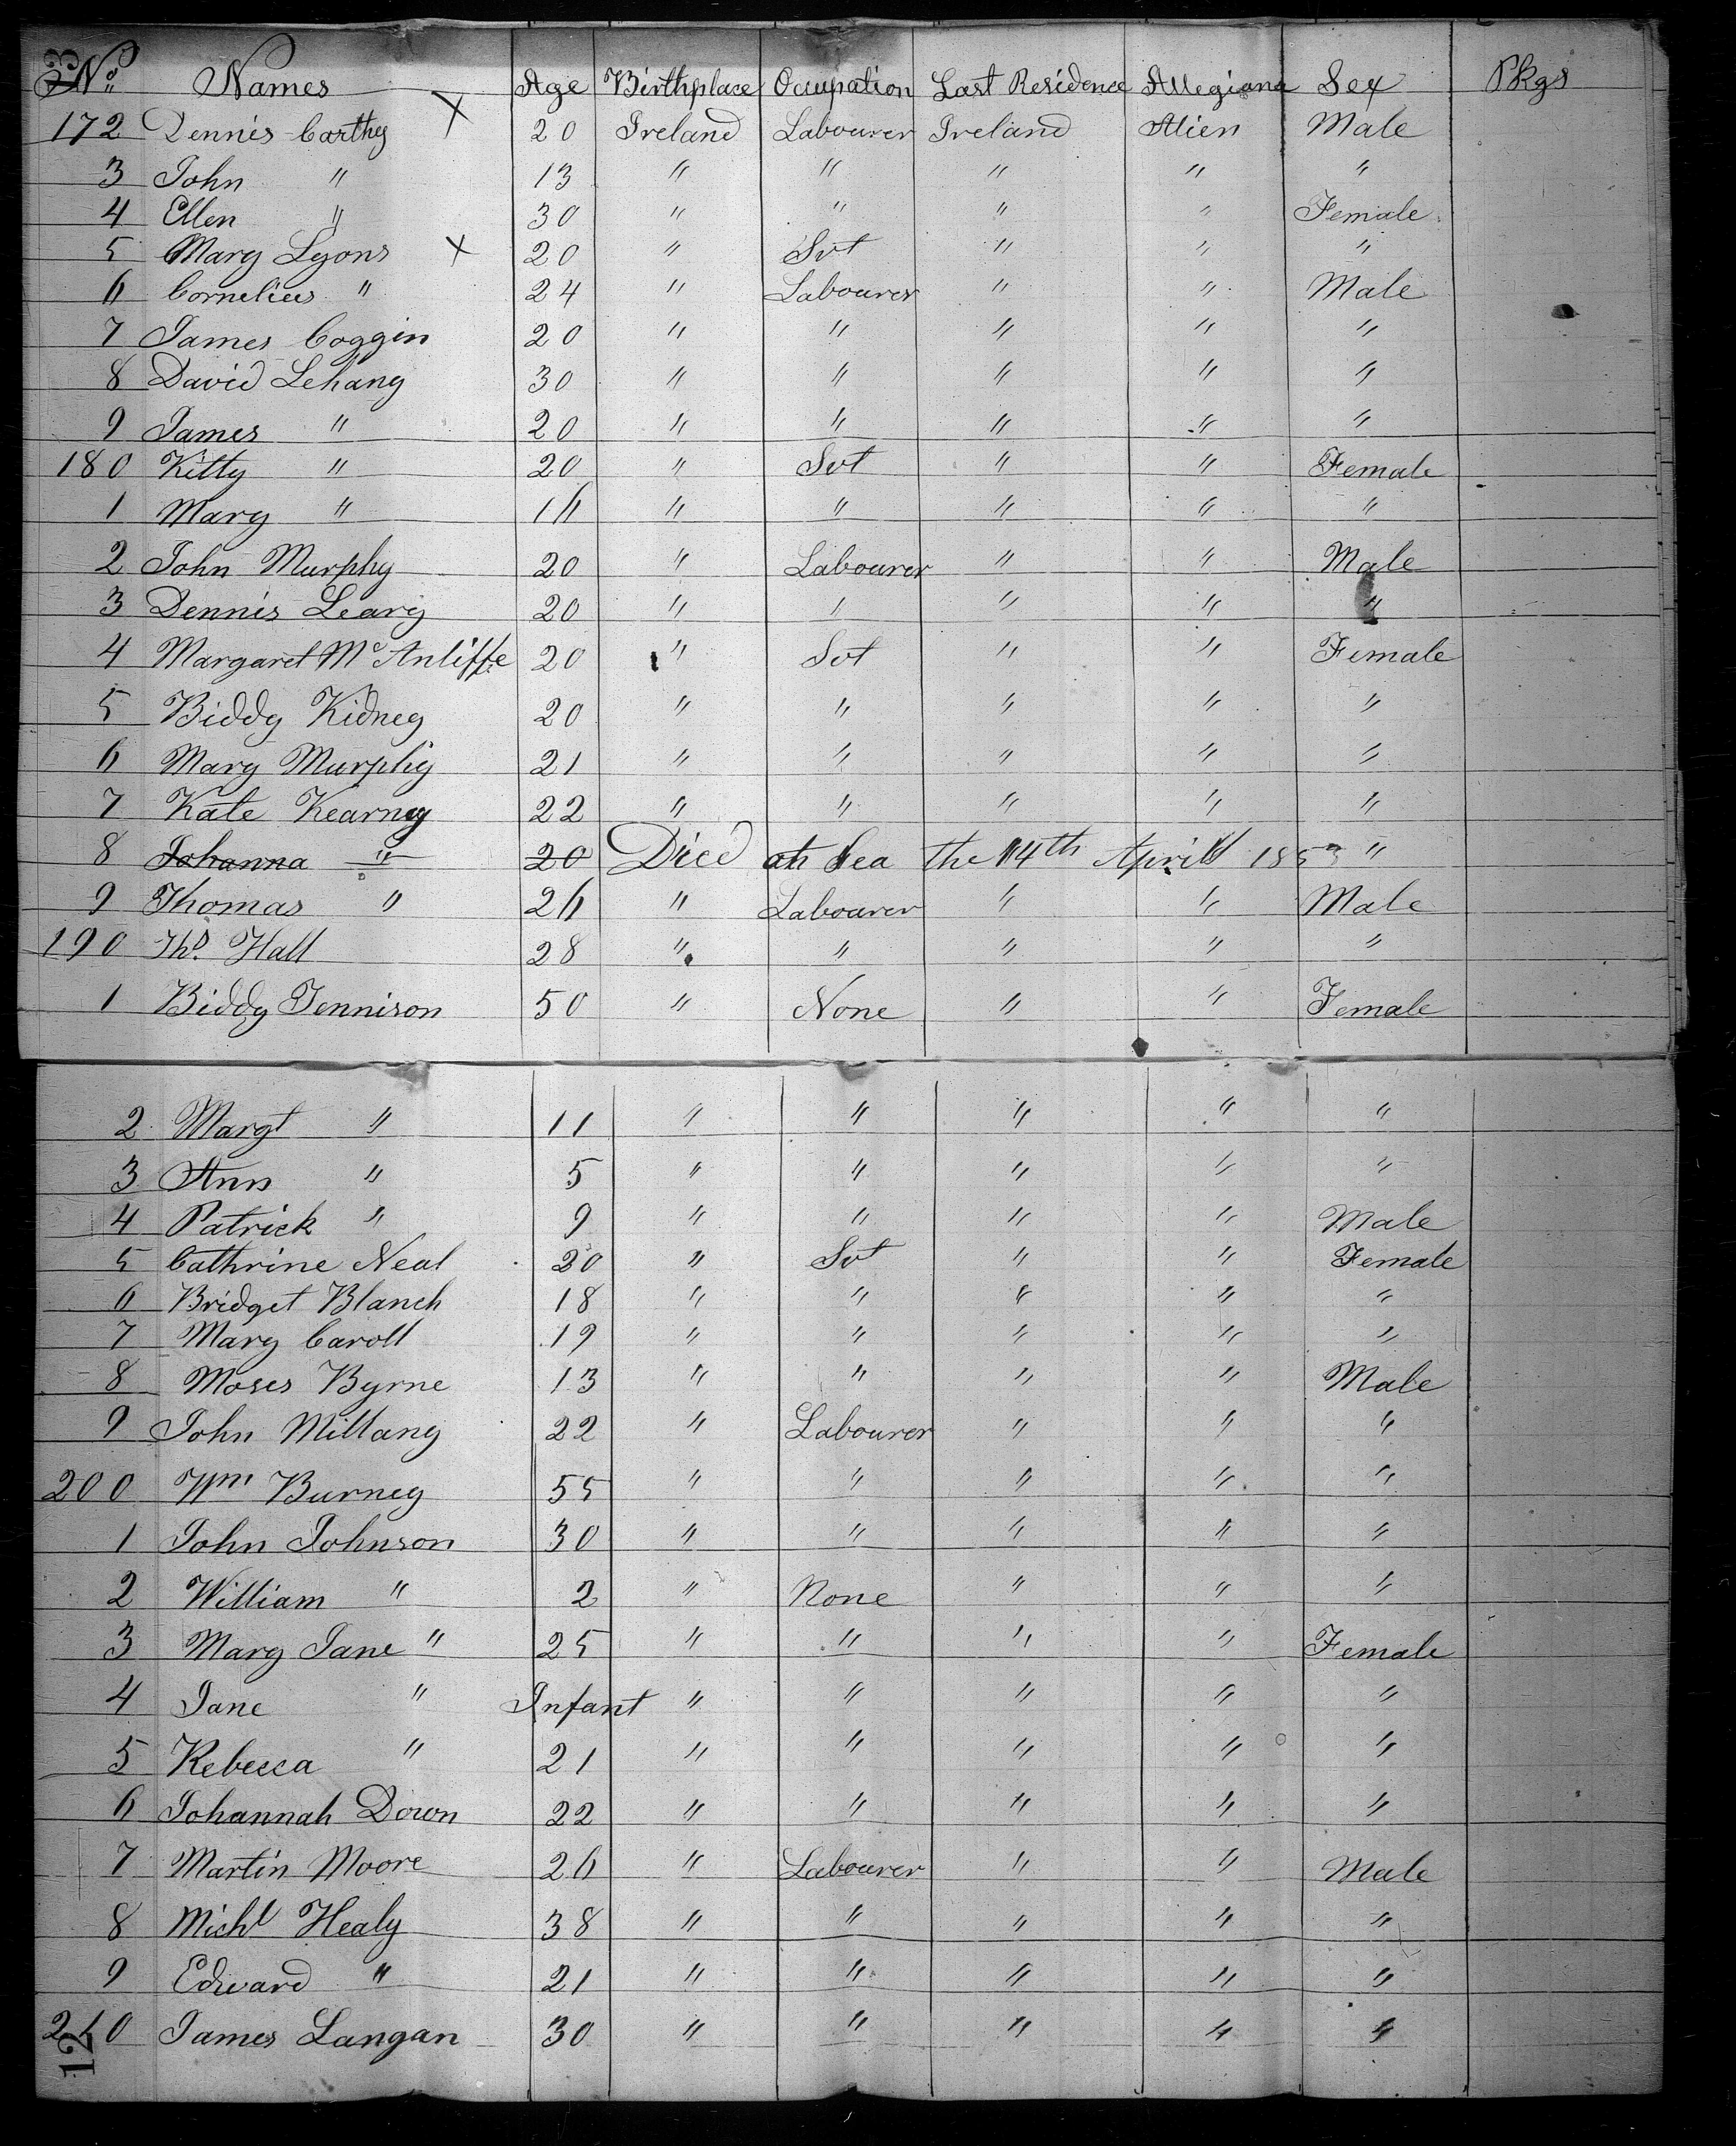 No. Names Age Birthplace Occupation Last Residence Allegiance Sex Pkgs
172 Dennis Carthy X 20 Ireland Labourer Ireland Alien Male
3 John " 13 " " " " "
4 Ellen " 30 " " " " Female
5 Mary Lyons X 20 " Svt " " "
6 Cornelius " 24 " Labourer " " Male
7 James Coggin 20 " " " " "
8 David Lehany 30 " " " " "
9 James " 20 " " " " "
180 Kitty " 20 " Svt " " Female
1 Mary " 16 " " " " "
2 John Murphy 20 " Labourer " " Male
3 Dennis Leary 20 " " " " "
4 Margaret McAnliffe 20 " Svt " " Female
5 Biddy Kidney 20 " " " " "
6 Mary Murphy 21 " " " " "
7 Kate Kearney 22 " " " " "
8 Johanna " 20 Died at Sea the 14th April 1853 "
9 Thomas " 26 " Labourer " " Male
190 Thos. Hall 28 " " " " "
1 Biddy Tennison 50 " None " " Female
2 Margt " 11 " " " " "
3 Ann " 5 " " " " "
4 Patrick " 9 " " " " Male
5 Cathrine Neal 20 " Svt " " Female
6 Bridget Blanch 18 " " " " "
7 Mary Caroll 19 " " " " "
8 Moses Byrne 13 " " " " Male
9 John Millany 22 " Labourer " " "
200 Wm Burney 55 " " " " "
1 John Johnson 30 " " " " "
2 William " 2 " None " " "
3 Mary Jane " 25 " " " " Female
4 Jane " Infant " " " " "
5 Rebecca " 21 " " " " "
6 Johannah Down 22 " " " " "
7 Martin Moore 26 " Labourer " " Male
8 Michl Healy 38 " " " " "
9 Edward " 21 " " " " "
210 James Langan 30 " " " " "
12